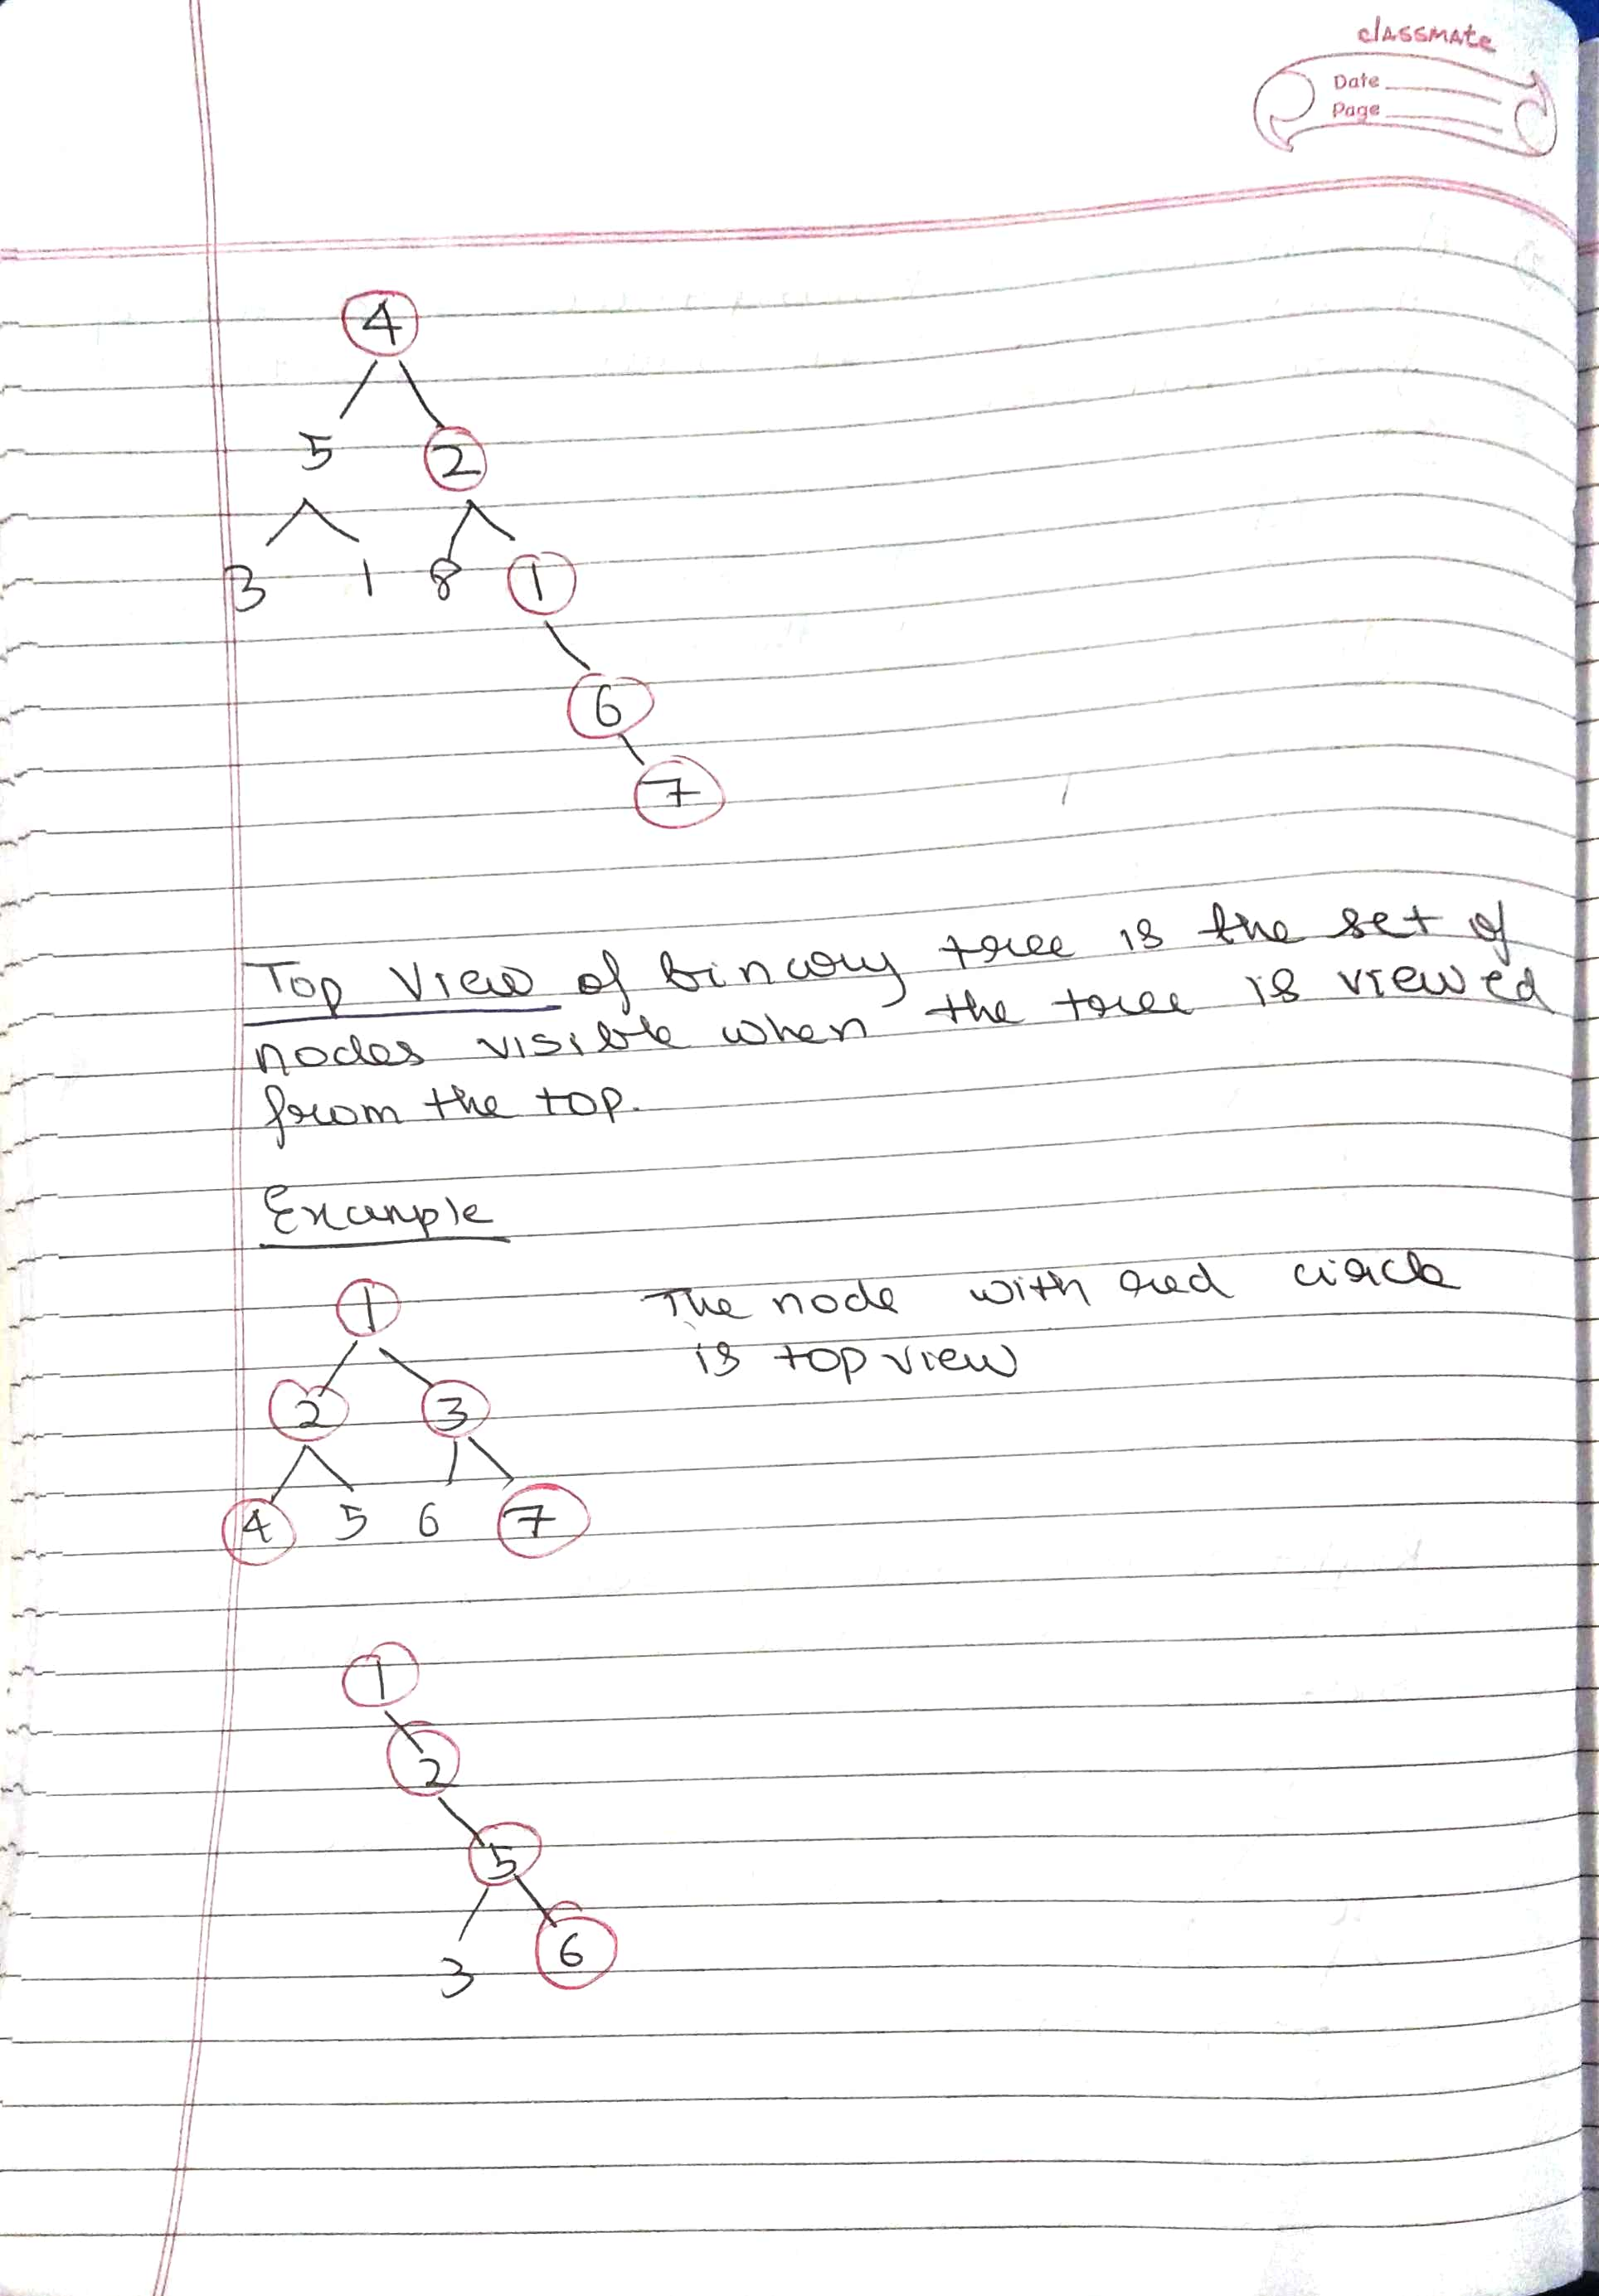 classmate
Date
Page
4
5 2
3 1 8 1
6
7
Top View of binary tree is the set of
nodes visible when the tree is viewed
from the top.
Example
1
The node with red circle
is top view
2 3
4 5 6 7
1
2
5
3 6